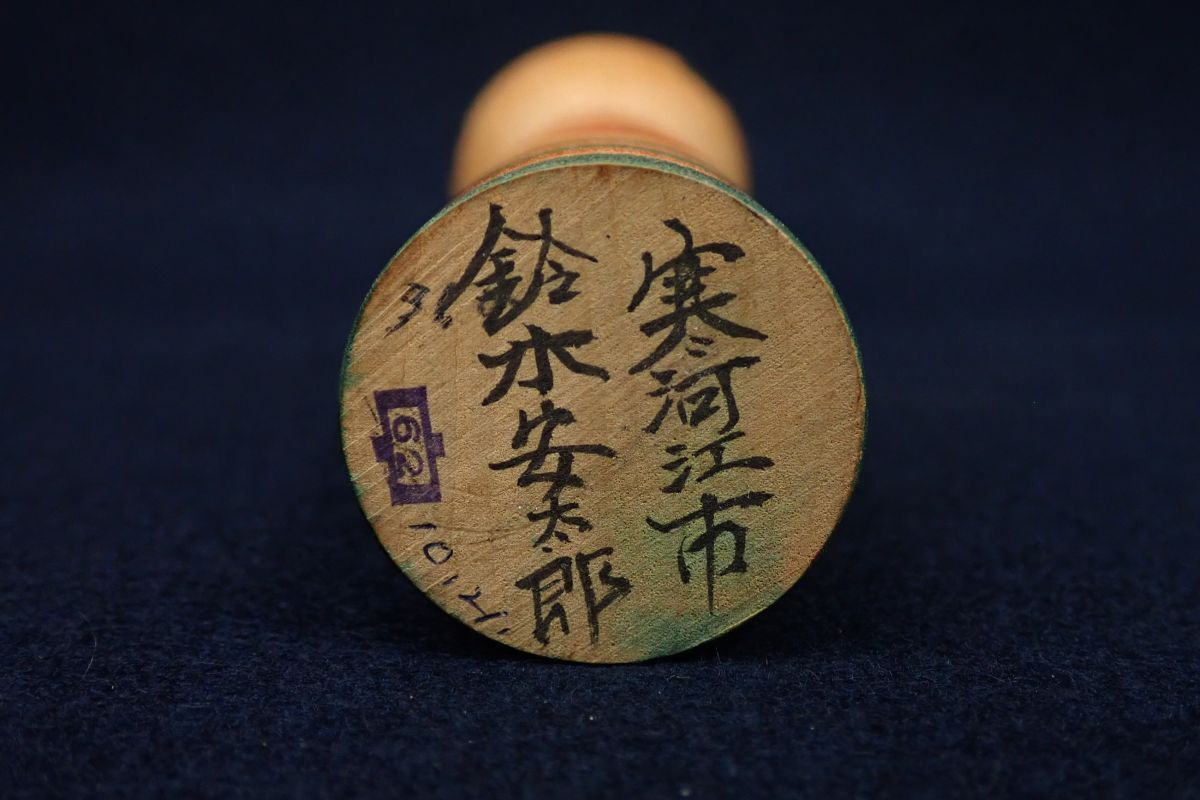 寒河江市
鈴木安太郎
62
10.21.